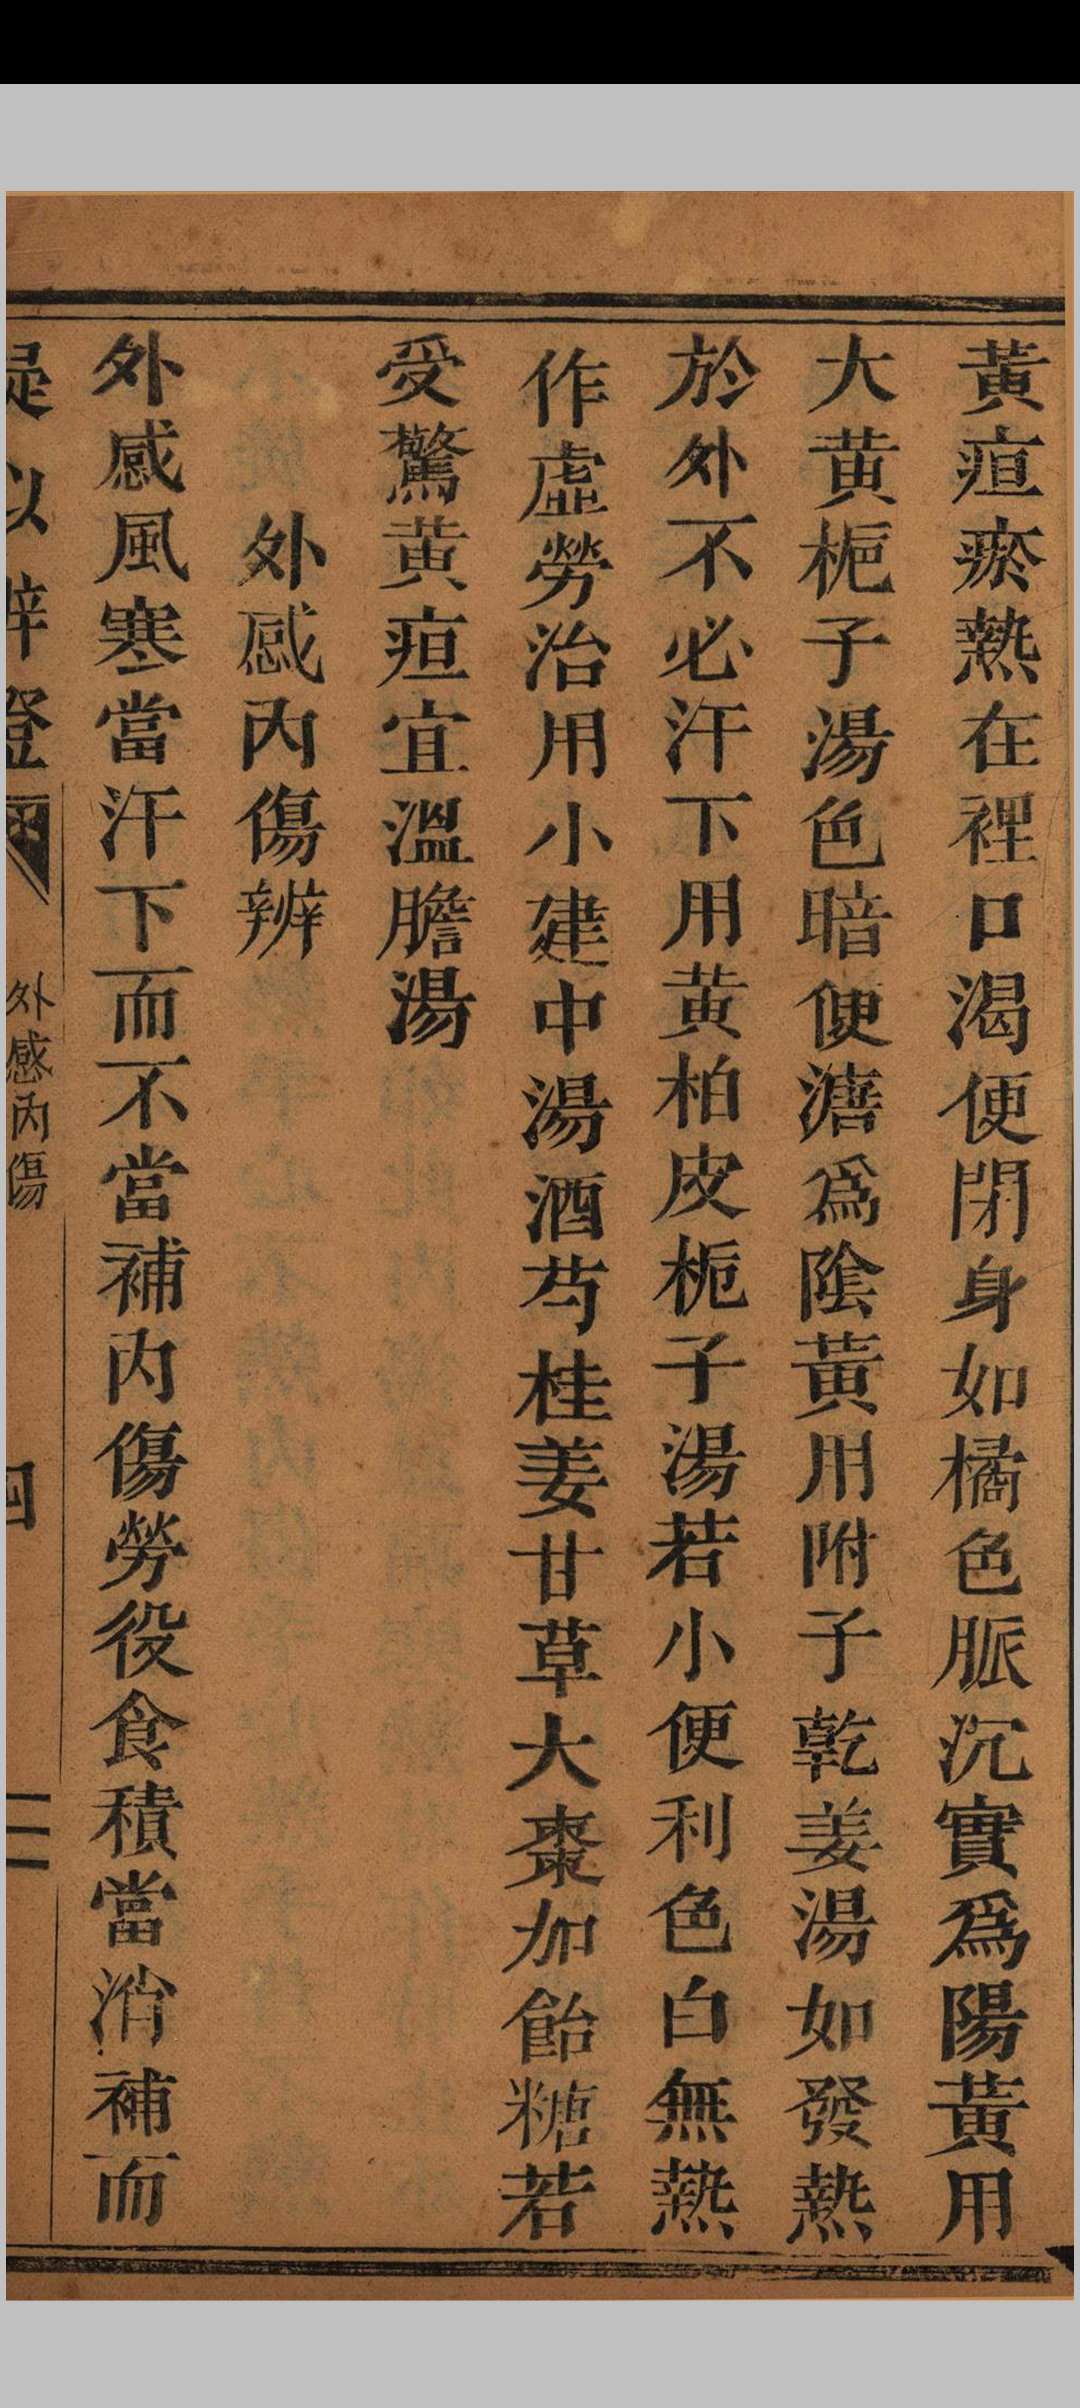 黃疸瘀熱在裡口渴便閉身如橘色脈沉實爲陽黃用
大黄梔子湯色暗便溏爲陰黃用附子乾姜湯如發熱
於外不必汗下用黄柏皮梔子湯若小便利色白無熱
作虛勞治用小建中湯酒芍桂姜甘草大棗加飴糖若
受驚黄疸宜溫膽湯
外感內傷辨
外感風寒當汗下而不當補內傷勞役食積當消補而
外感內傷